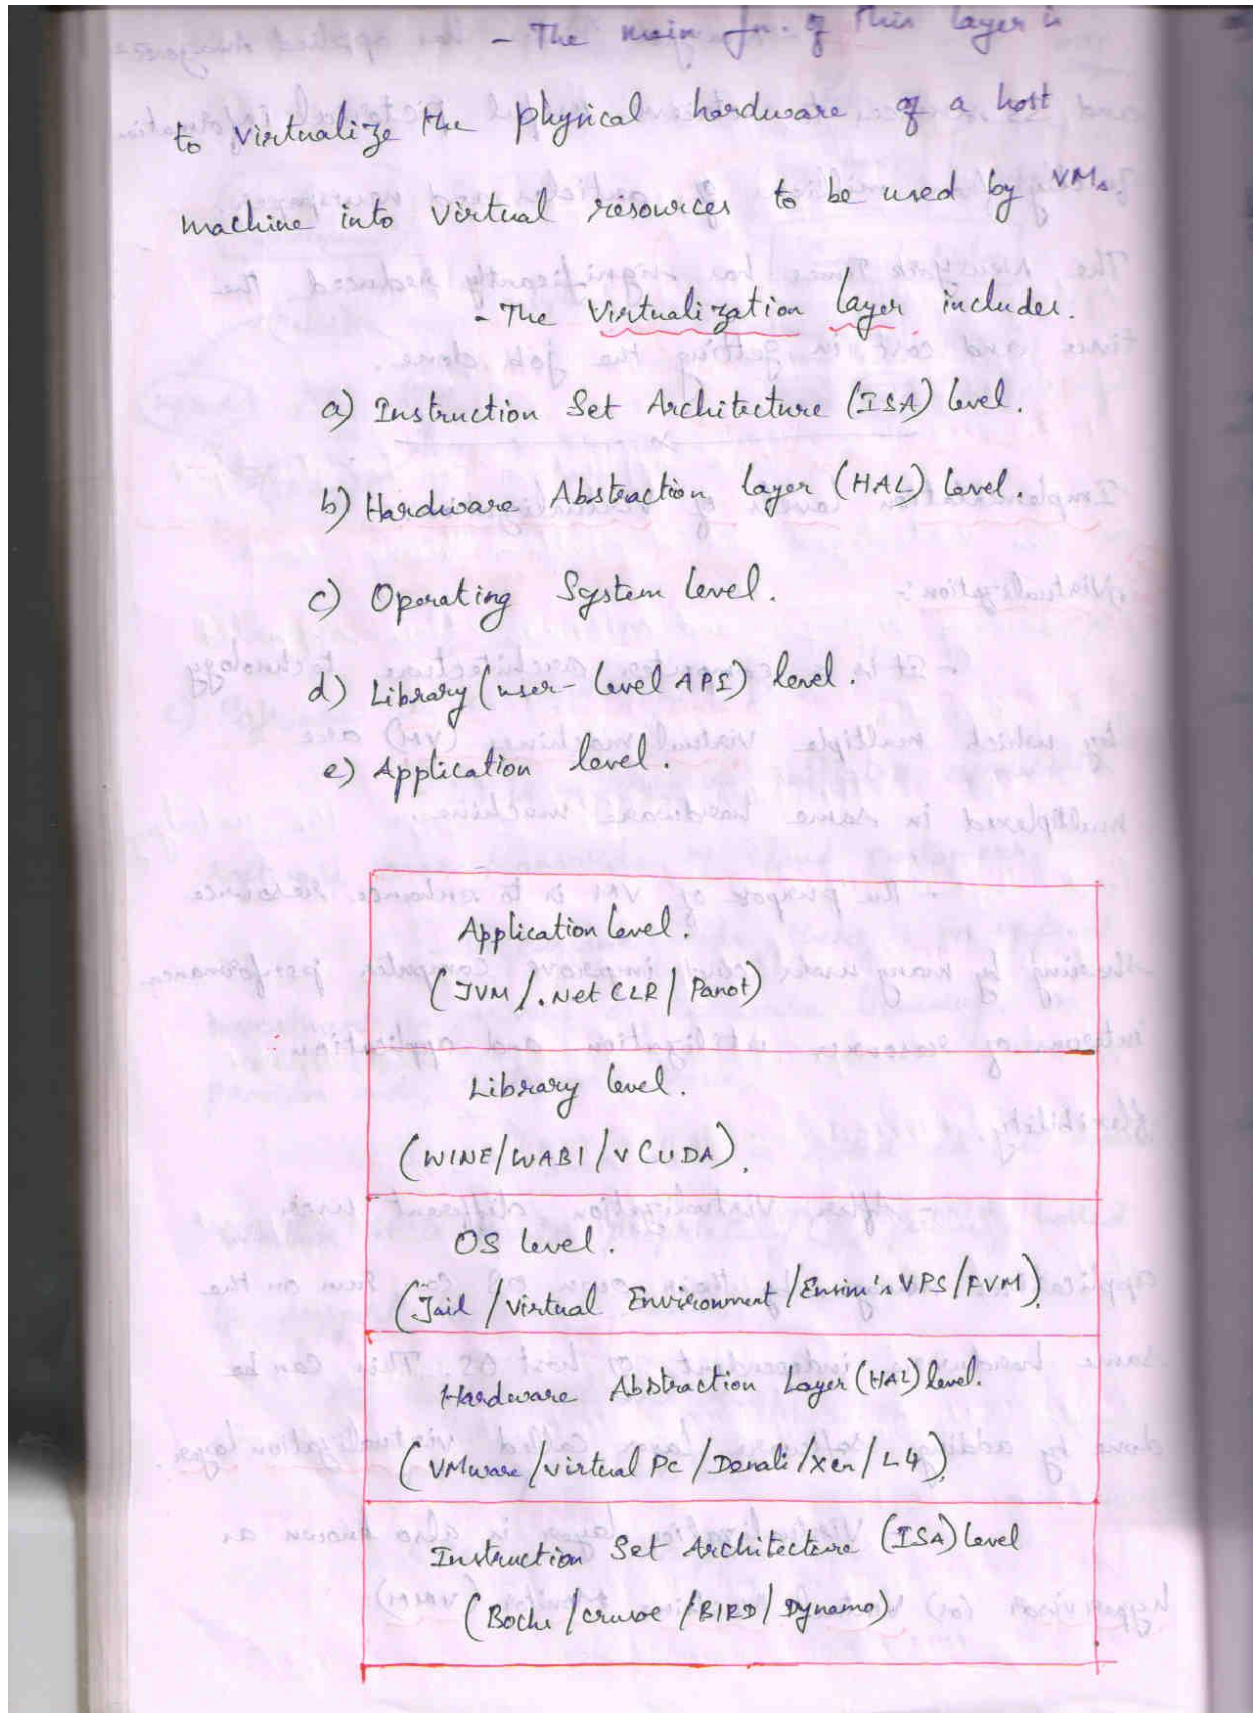 - The main fn. of this layer is
to virtualize the physical hardware of a host
machine into virtual resources to be used by VMs.
- The Virtualization layer includes.
a) Instruction Set Architecture (ISA) level.
b) Hardware Abstraction layer (HAL) level.
c) Operating System level.
d) Library (user-level API) level.
e) Application level.
Application level.
(JVM / .Net CLR / Panot)
Library level.
(WINE/WABI/vCUDA).
OS level.
(Jail / Virtual Environment / Ensim's VPS / FVM).
Hardware Abstraction Layer (HAL) level.
(VMware / Virtual Pc / Denali / Xen / L4)
Instruction Set Architecture (ISA) level
(Bochs / crusoe / BIRD / Dynamo)